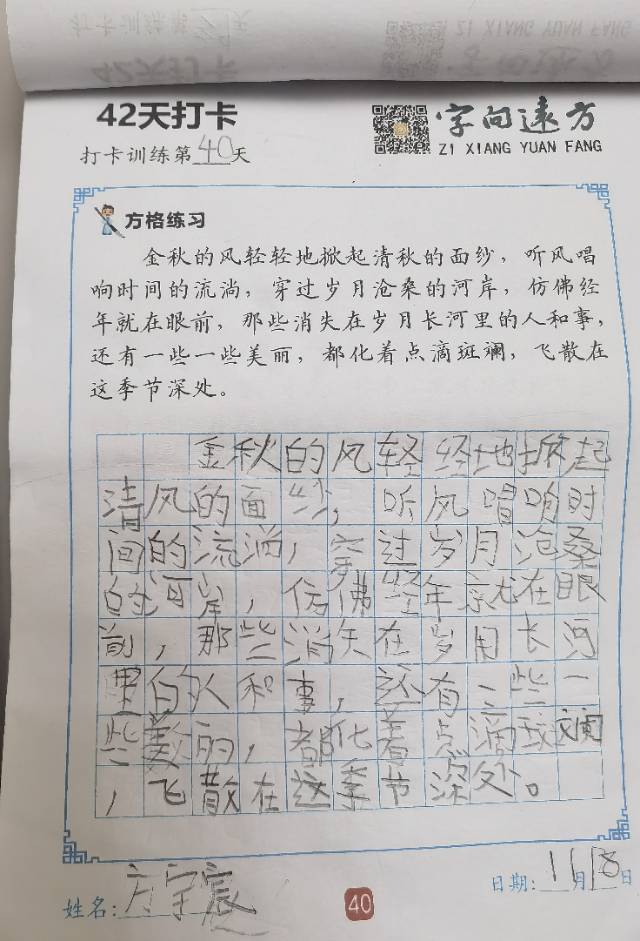 42天打卡
打卡训练第40天
字向远方
ZI XIANG YUAN FANG
方格练习
金秋的风轻轻地掀起清秋的面纱，听风唱
响时间的流淌，穿过岁月沧桑的河岸，仿佛经
年就在眼前，那些消失在岁月长河里的人和事，
还有一些一些美丽，都化着点滴斑斓，飞散在
这季节深处。
金秋的风轻经地掀起
清风的面纱，听风唱响时
间的流淌，穿过岁月沧桑
的河岸，仿佛经年就在眼
前，那些消矢在岁用长河
里的人和事，还有一些一
些美丽，都化着点滴斑斓
，飞散在这季节深处。
姓名：方宇宸
40
日期：11月18日